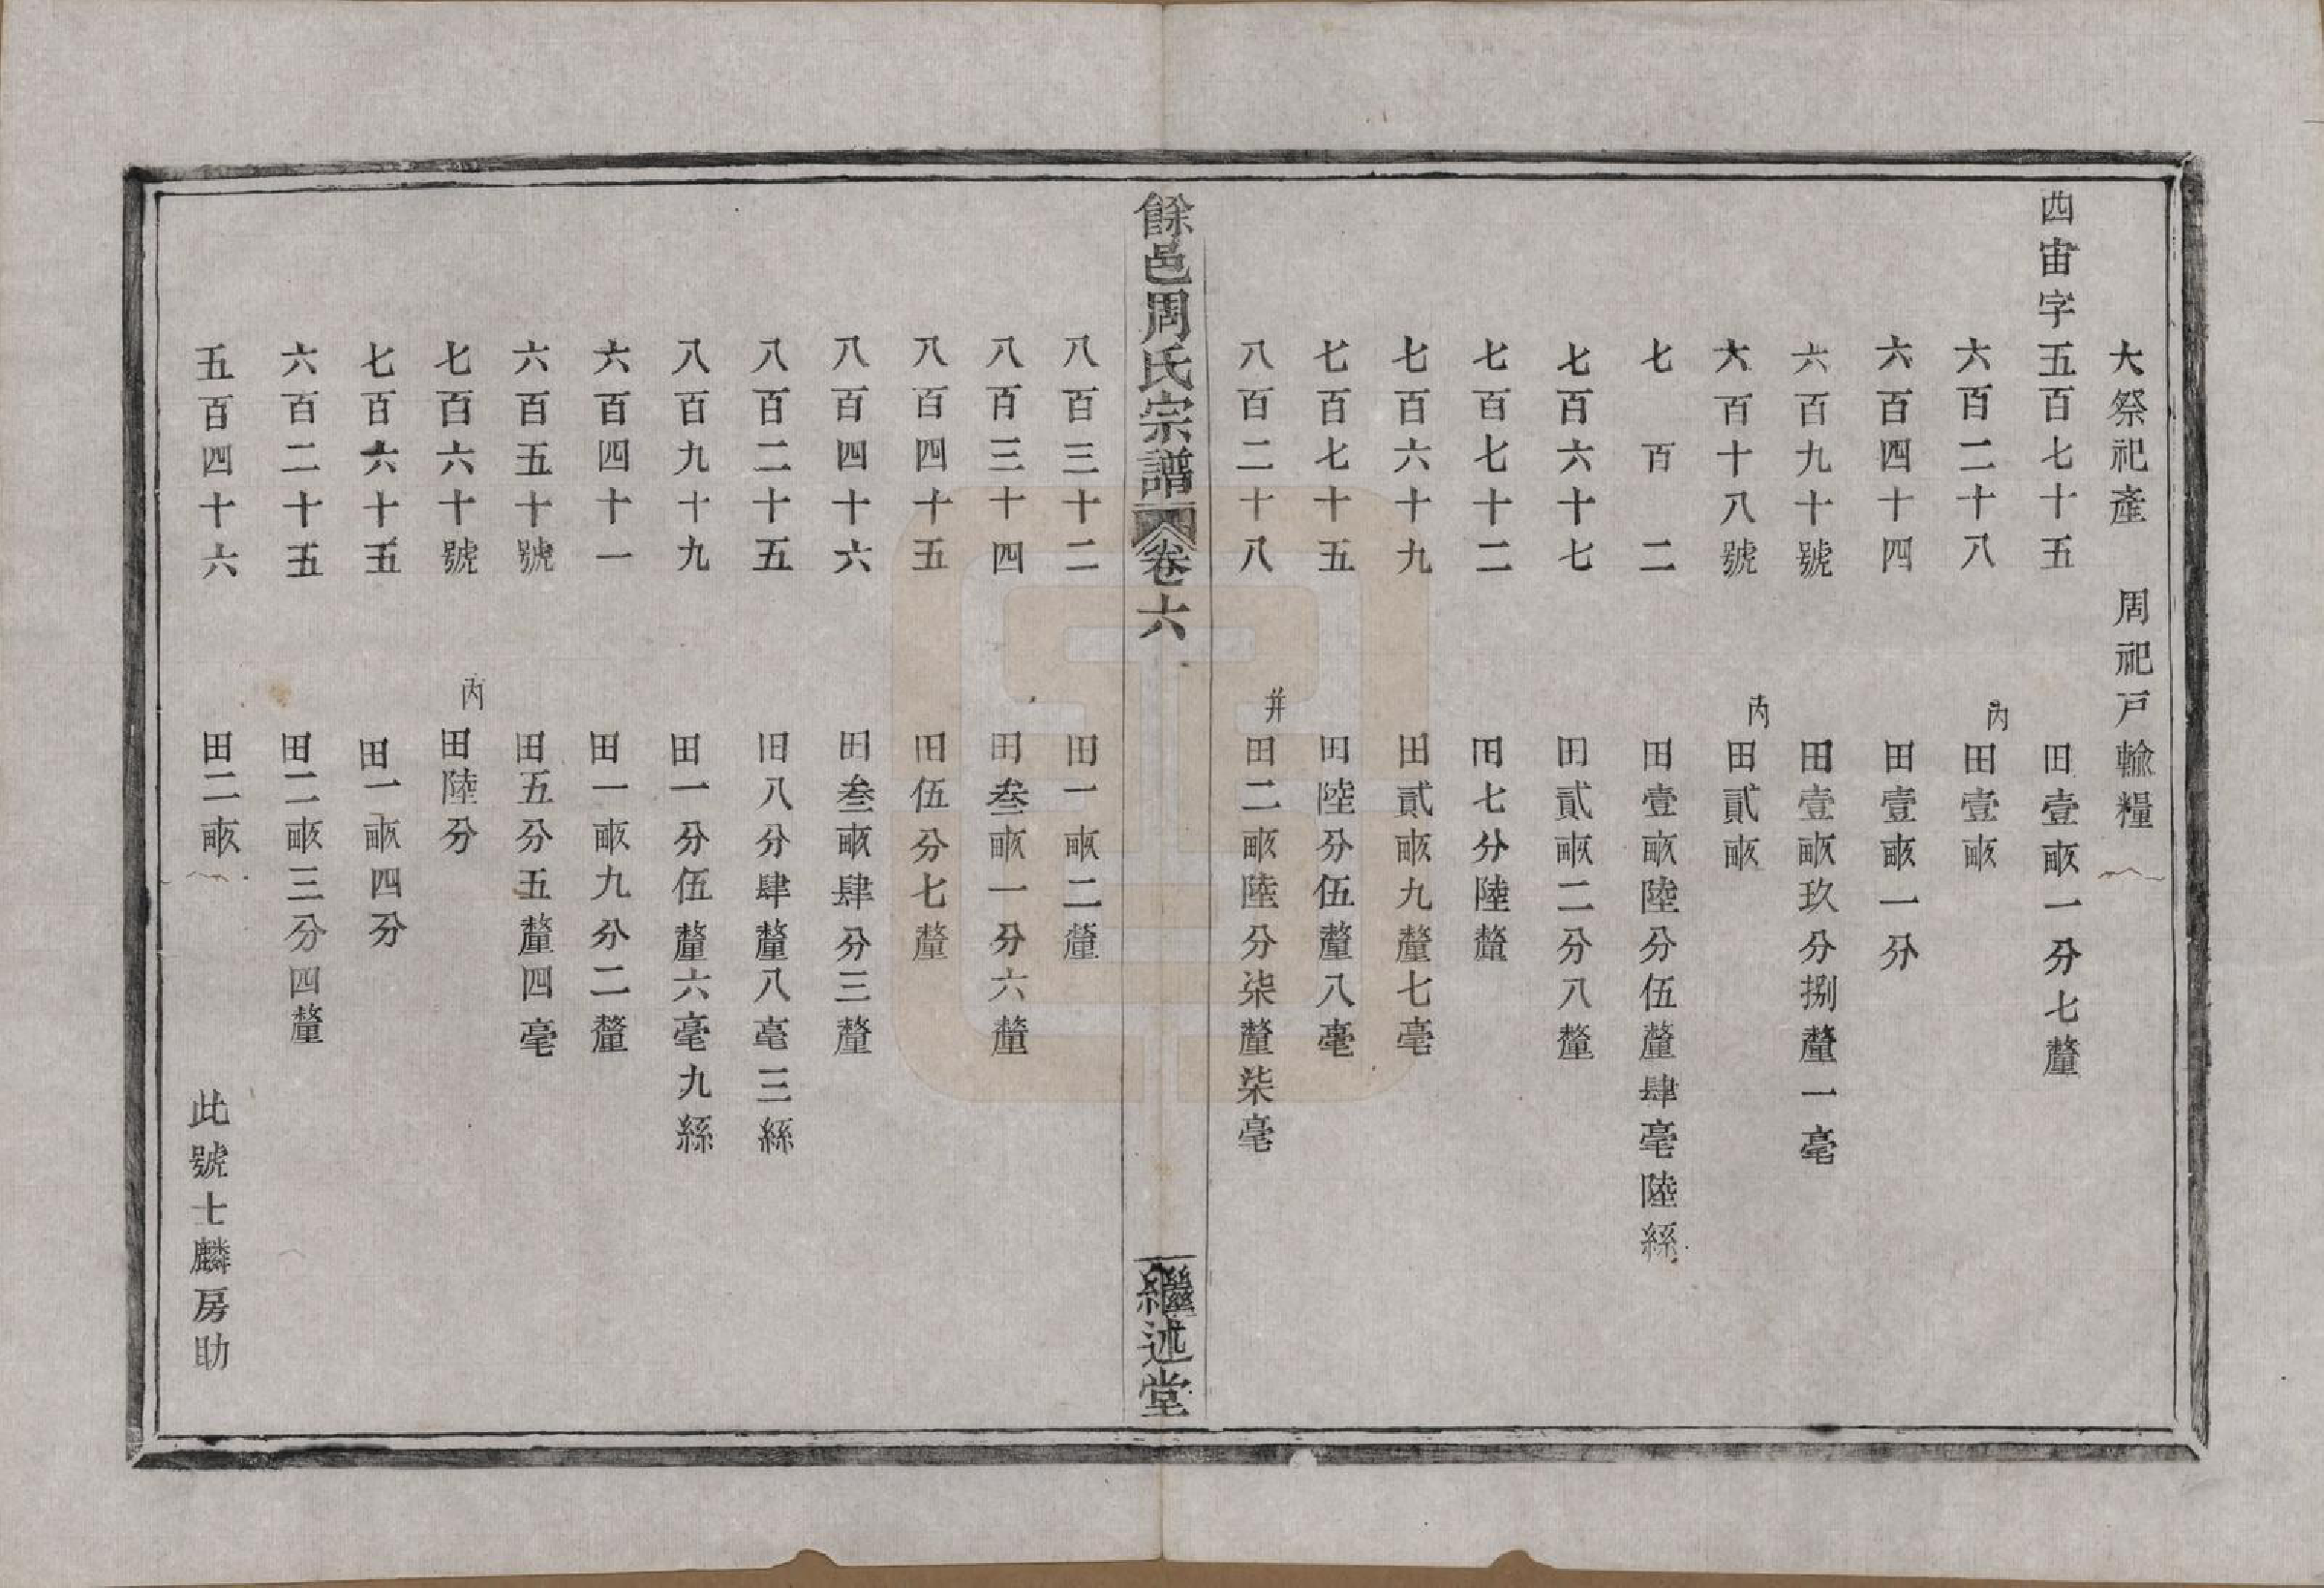 大祭祀產　周祀戸輸糧
西宙字五百七十五　田壹畝一分七釐
六百二十八　內田壹畝
六百四十四　田壹畝一分
六百九十號　田壹畝玖分捌釐一毫
六百十八號　內田貳畝
七百二　田壹畝陸分伍釐肆毫陸絲
七百六十七　田貳畝二分八釐
七百七十二　田七分陸釐
七百六十九　田貳畝九釐七毫
七百七十五　田陸分伍釐八毫
八百二十八　并田二畝陸分柒釐柒毫
餘邑周氏宗譜　卷六　繼述堂
八百三十二　田一畝二釐
八百三十四　田叁畝一分六釐
八百四十五　田伍分七釐
八百四十六　田叁畝肆分三釐
八百二十五　田八分肆釐八毫三絲
八百九十九　田一分伍釐六毫九絲
六百四十一　田一畝九分二釐
六百五十號　田五分五釐四毫
七百六十號　內田陸分
七百六十五　田一畝四分
六百二十五　田二畝三分四釐
五百四十六　田二畝　此號士麟房助